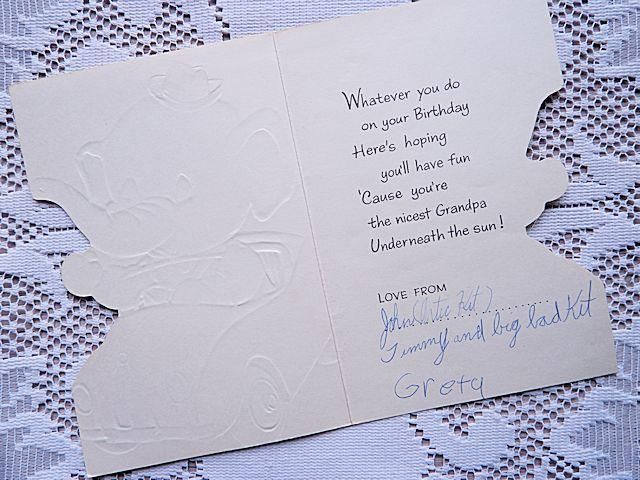 Whatever you do
on your Birthday
Here's hoping
you'll have fun
'Cause you're
the nicest Grandpa
Underneath the sun!
LOVE FROM
John (Kit)
Timmy and big bad Kit
Grety